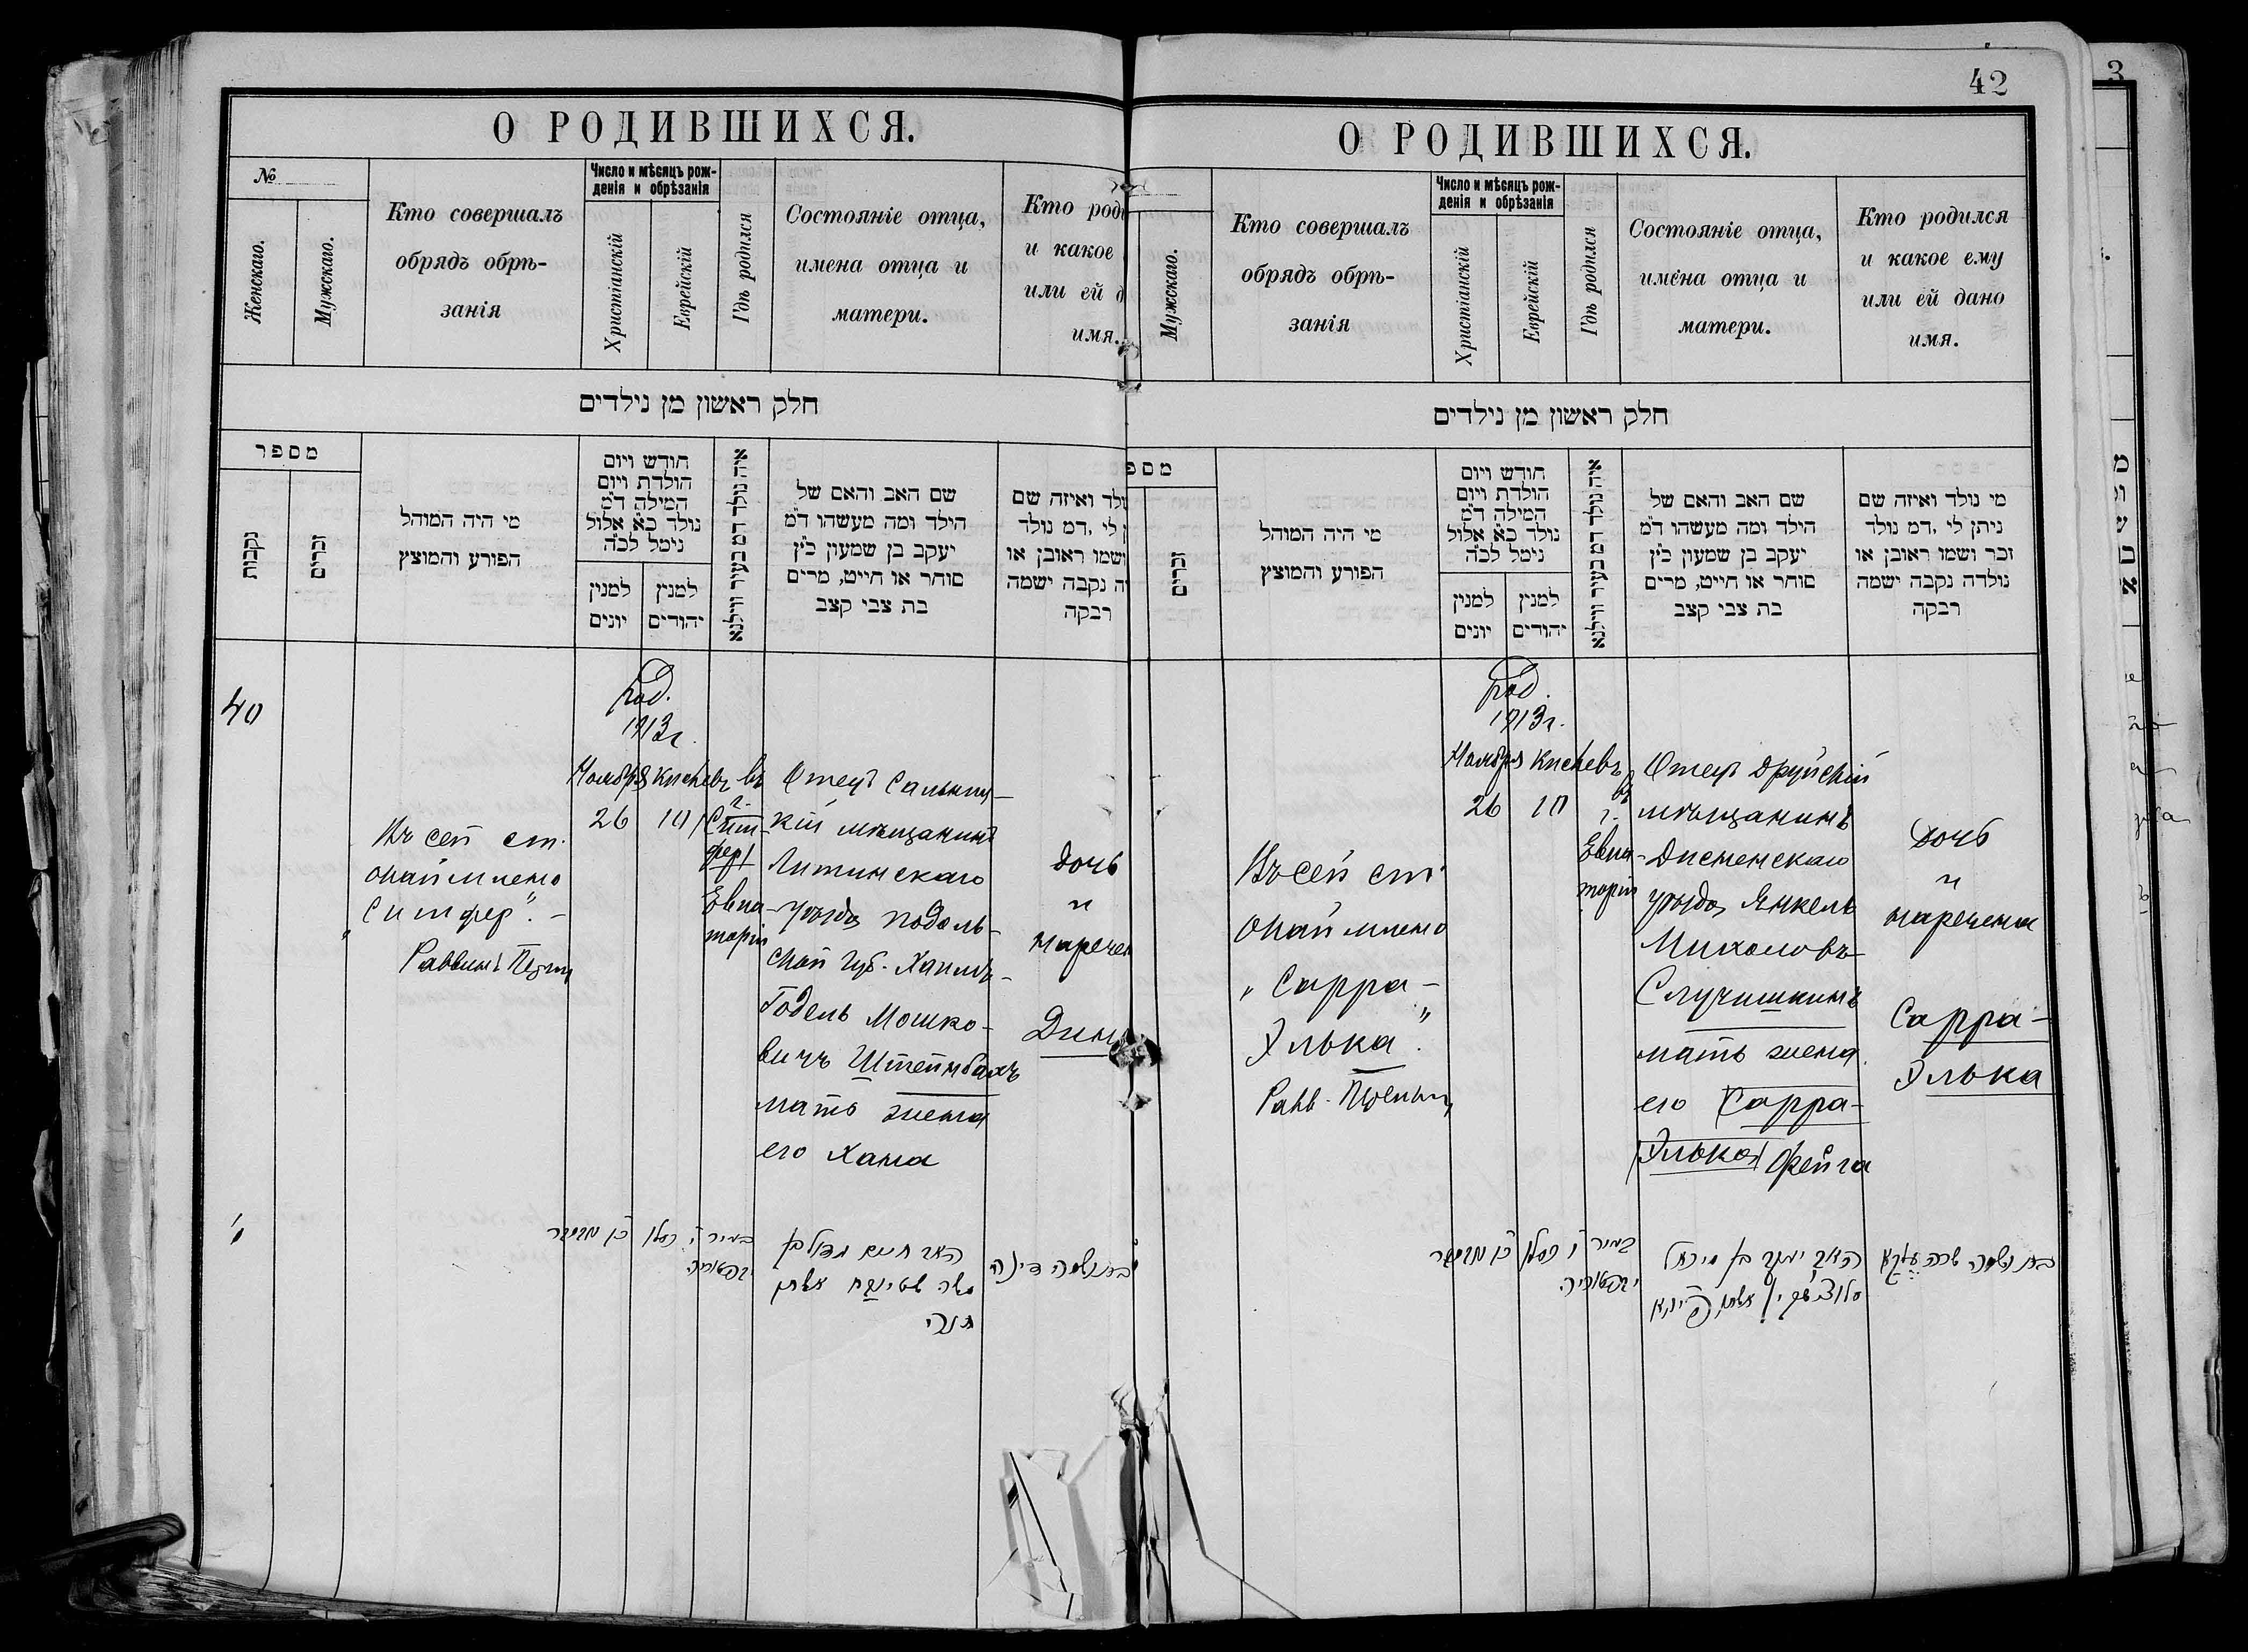 42
3
О РОДИВШИХСЯ.
№
Женскаго.
Мужскаго.
Кто совершалъ
обрядъ обрѣ-
занія
Число и мѣсяцъ рож-
денія и обрѣзанія
Христіанскій
Еврейскій
Гдѣ родился
Состояніе отца,
имена отца и
матери.
Кто роди
и какое
или ей д
имя.
חלק ראשון מן נילדים
מספר
נקבות
זכרים
מי היה המוהל
הפורע והמוצץ
חודש ויום
הולדת ויום
המילה ד״מ
נולד כ״א אלול
נימל לכ״ה
למנין
יונים
למנין
יהודים
איה נולד דמ בעיר ווילנא
שם האב והאם של
הילד ומה מעשהו ד״מ
יעקב בן שמעון כ״ץ
סוחר או חייט, מרים
בת צבי קצב
ולד ואיזה שם
לי ,דמ נולד
ושמו ראובן או
ה נקבה ישמה
רבקה
40
род.
1913г.
Ноября Кислевъ въ
26 10
г.
Сим-
фер/
Евпа-
торіи
Къ сей ст.
окаймлено
"Симфер". -
Раввинъ
Отецъ
кій мѣщанинъ
Литинскаго
уѣзда Подоль-
ской губ. Хаимъ-
Годель Мошко-
вичъ Штейнбахъ
мать жена
его Хана
дочь
и
наречен
Дина
האב חיים גדל בן
משה שטינבח אשתו
חנה
בת נשמה דינה
О РОДИВШИХСЯ.
Мужскаго.
Кто совершалъ
обрядъ обрѣ-
занія
Число и мѣсяцъ рож-
денія и обрѣзанія
Христіанскій
Еврейскій
Гдѣ родился
Состояніе отца,
имена отца и
матери.
Кто родился
и какое ему
или ей дано
имя.
חלק ראשון מן נילדים
מספ
זכרים
מי היה המוהל
הפורע והמוצץ
חודש ויום
הולדת ויום
המילה ד״מ
נולד כ״א אלול
נימל לכ״ה
למנין
יונים
למנין
יהודים
איה נולד דמ בעיר ווילנא
שם האב והאם של
הילד ומה מעשהו ד״מ
יעקב בן שמעון כ״ץ
סוחר או חייט, מרים
בת צבי קצב
מי נולד ואיזה שם
ניתן לי ,דמ נולד
זכר ושמו ראובן או
נולדה נקבה ישמה
רבקה
род.
1913г.
Ноября Кислевъ
26 10
въ
г.
Евпа-
торіи
Къ сей ст.
окаймлено
"Сарра-
Элька".
Равв.
Отецъ Друйскій
мѣщанинъ
Дисненскаго
уѣзда Янкель
Михелевъ
Случишкинъ
мать жена
его Сарра-
Элька/ Фейга
дочь
и
наречена
Сарра-
Элька
האב יעקב בן מיכאל
בת נשמה שרה עלקא